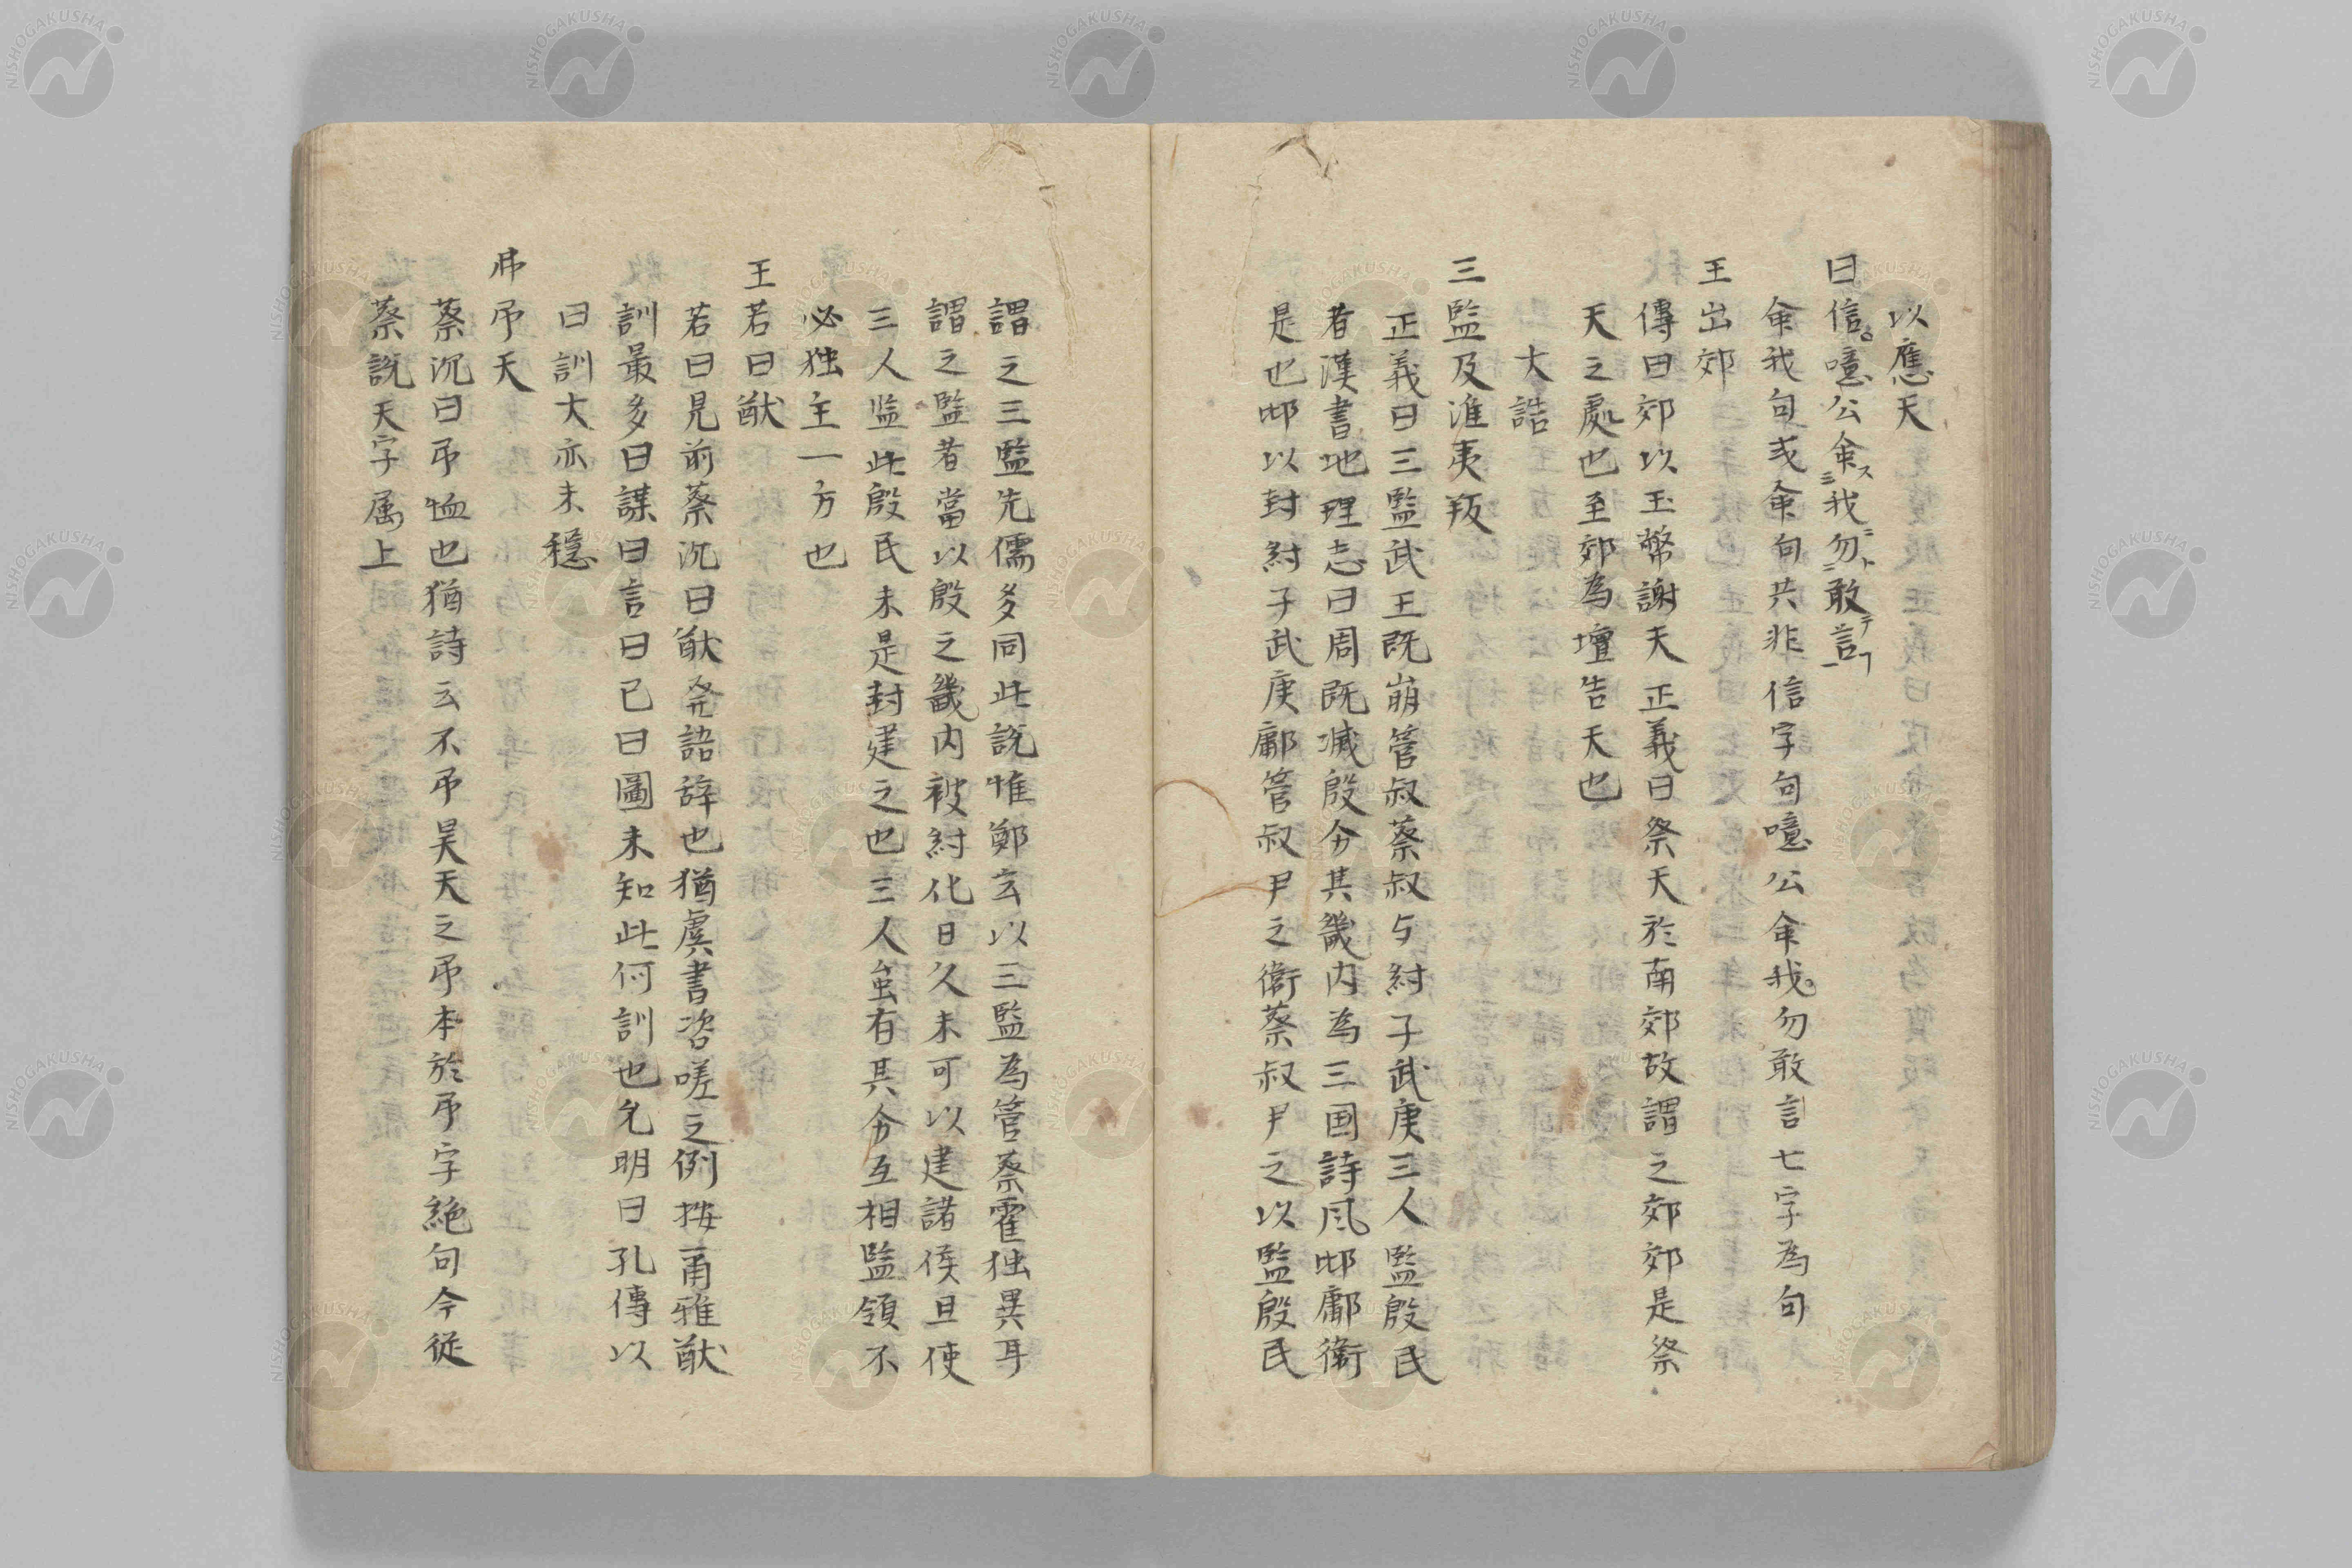 以應天
曰信噫公命我勿敢言
命我句或命句共非信字句噫公命我勿敢言七字為句
王出郊
傳曰郊以玉幣謝天正義曰祭天於南郊故謂之郊郊是祭
天之處也至郊為壇告天也
大誥
三監及淮夷叛
正義曰三監武王既崩管叔蔡叔与紂子武庚三人監殷民
者漢書地理志曰周既滅殷分其畿内為三国詩風邶鄘衛
是也邶以封紂子武庚鄘管叔尹之衛蔡叔尹之以監殷民
謂之三監先儒多同此説惟鄭玄以三監為管蔡霍独異耳
謂之監者當以殷之畿内被紂化日久未可以建諸侯且使
三人监此殷民未是封建之也三人虽有其分互相監領不
必独主一方也
王若曰猷
若曰見前蔡沉曰猷発語辞也猶虞書咨嗟之例按甬雅猷
訓最多曰謀曰言曰已曰圖未知此何訓也允明曰孔傳以
曰訓大亦未穩
弗弔天
蔡沉曰弔恤也猶詩云不弔昊天之弔本於弔字絶句今従
蔡説天字属上
NISHOGAKUSHA